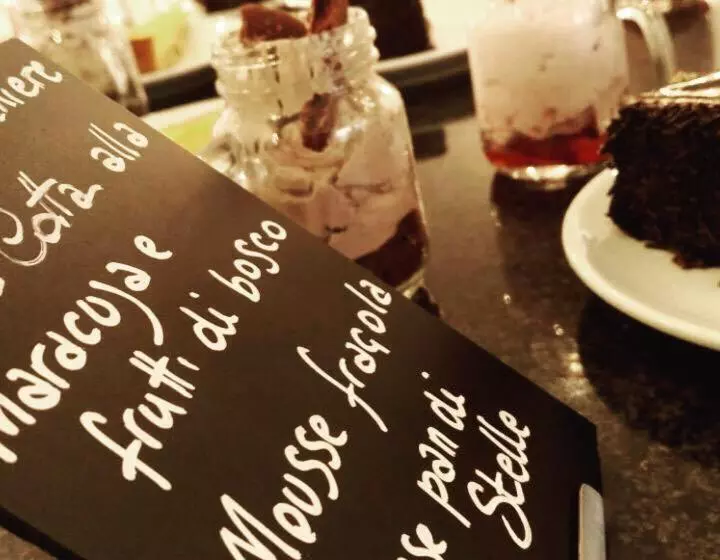 Cotta alla
Maracuja e
frutti di bosco
Mousse fragola
pan di
Stelle